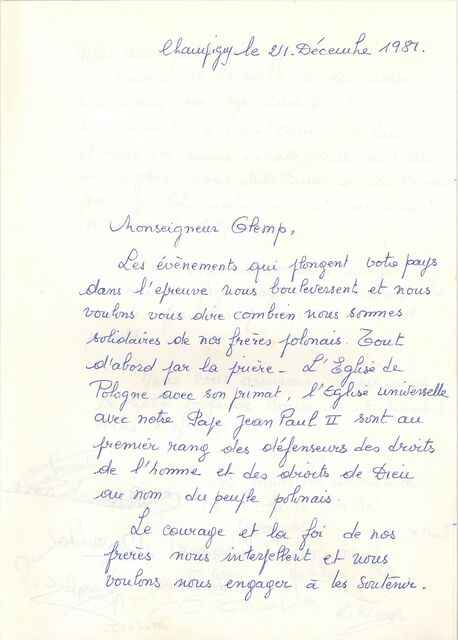 Champigny le 21. Décembre 1981.
Monseigneur Glemp,
Les évènements qui plongent votre pays
dans l'épreuve nous bouleversent et nous
voulons vous dire combien nous sommes
solidaires de nos frères polonais. Tout
d'abord par la prière - L'Eglise de
Pologne avec son primat, l'Eglise universelle
avec notre Pape Jean Paul II sont au
premier rang des défenseurs des droits
de l'homme et des droits de Dieu
au nom du peuple polonais.
Le courage et la foi de nos
frères nous interpellent et nous
voulons nous engager à les soutenir.